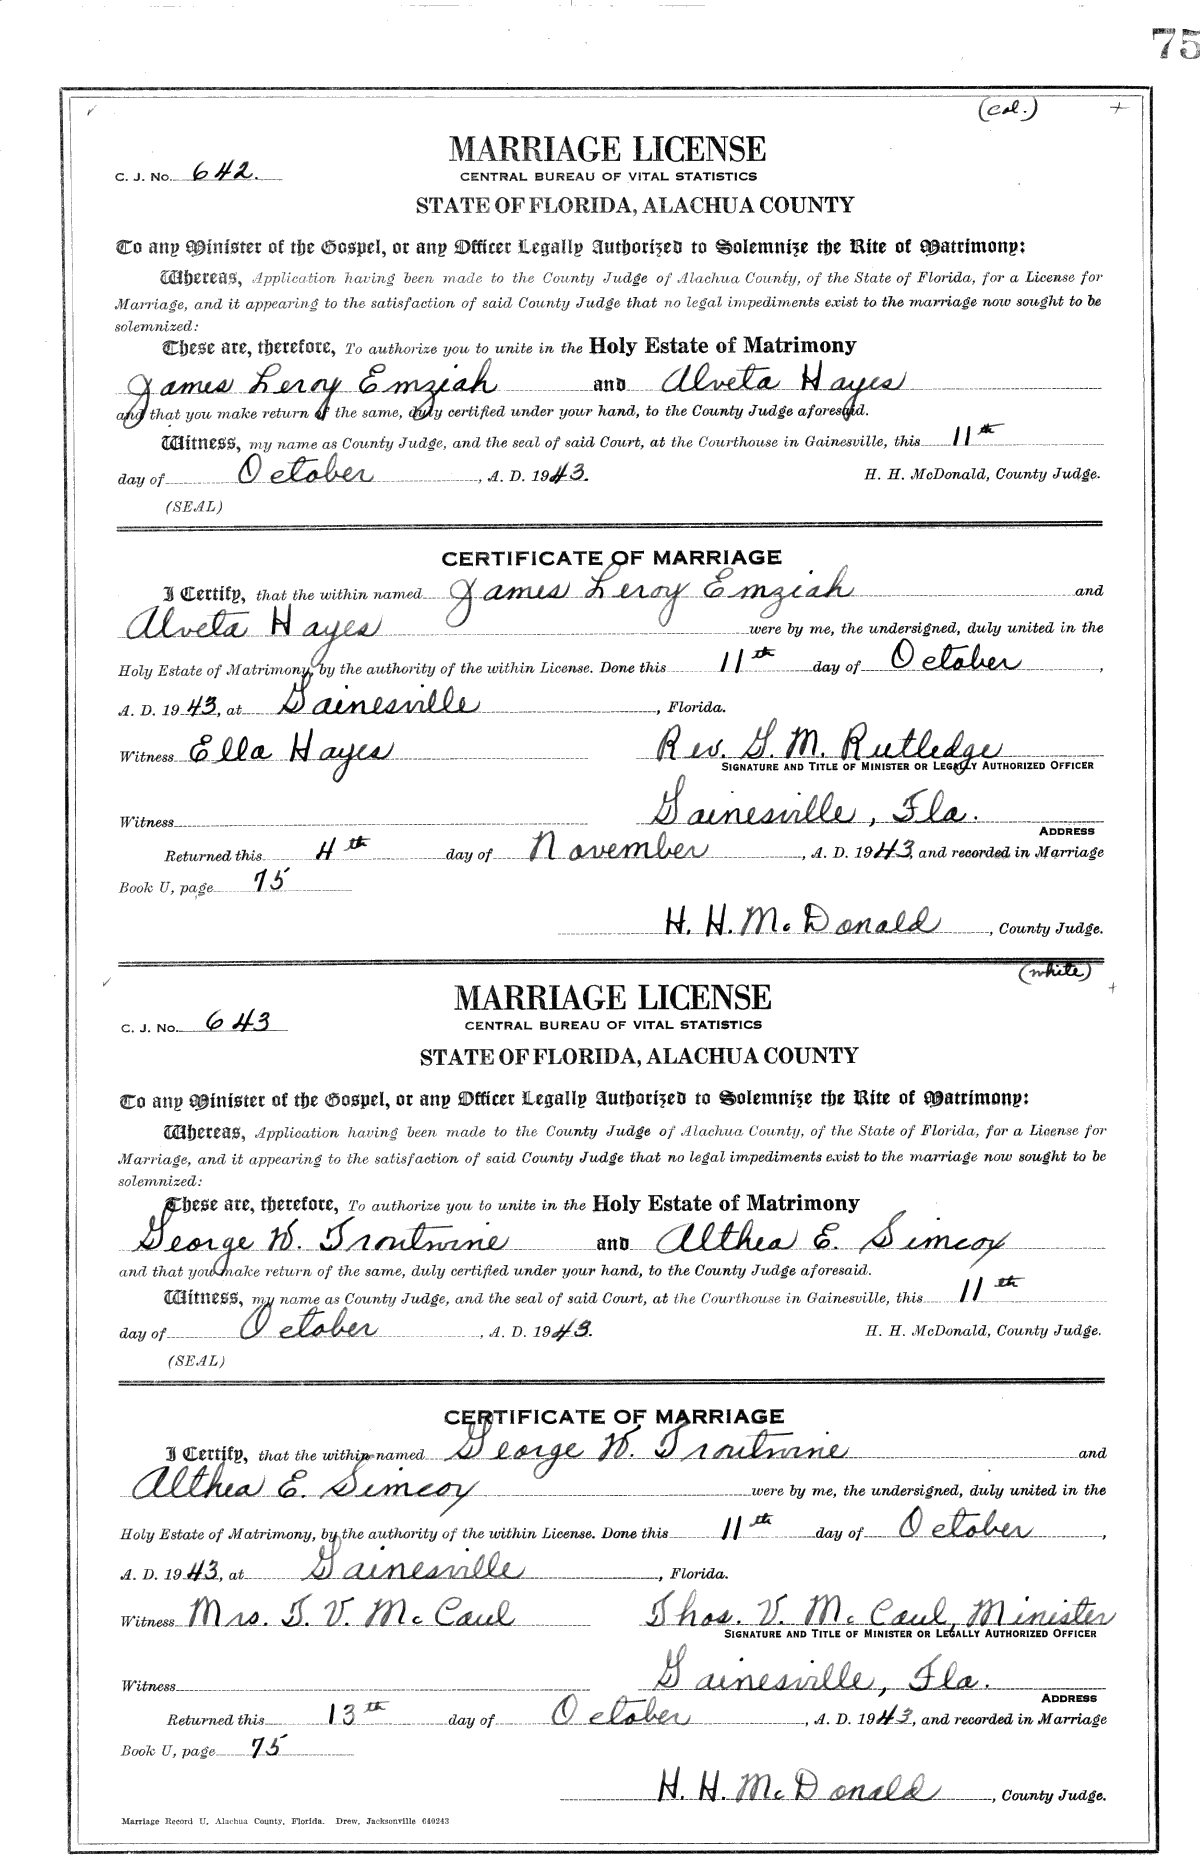 75
(col.)
MARRIAGE LICENSE
C. J. No. 642.
CENTRAL BUREAU OF VITAL STATISTICS
STATE OF FLORIDA, ALACHUA COUNTY
To any Minister of the Gospel, or any Officer Legally Authorized to Solemnize the Rite of Matrimony:
Whereas, Application having been made to the County Judge of Alachua County, of the State of Florida, for a License for
Marriage, and it appearing to the satisfaction of said County Judge that no legal impediments exist to the marriage now sought to be
solemnized:
These are, therefore, To authorize you to unite in the Holy Estate of Matrimony
James Leroy Emziah and Alveta Hayes
and that you make return of the same, duly certified under your hand, to the County Judge aforesaid.
Witness, my name as County Judge, and the seal of said Court, at the Courthouse in Gainesville, this 11th
day of October, A. D. 1943. H. H. McDonald, County Judge.
(SEAL)
CERTIFICATE OF MARRIAGE
I Certify, that the within named James Leroy Emziah and
Alveta Hayes were by me, the undersigned, duly united in the
Holy Estate of Matrimony, by the authority of the within License. Done this 11th day of October,
A. D. 1943, at Gainesville, Florida.
Witness Ella Hayes Rev. G. M. Rutledge
SIGNATURE AND TITLE OF MINISTER OR LEGALLY AUTHORIZED OFFICER
Witness Gainesville, Fla.
ADDRESS
Returned this 4th day of November, A. D. 1943, and recorded in Marriage
Book U, page 75
H. H. McDonald, County Judge.
(white)
MARRIAGE LICENSE
C. J. No. 643
CENTRAL BUREAU OF VITAL STATISTICS
STATE OF FLORIDA, ALACHUA COUNTY
To any Minister of the Gospel, or any Officer Legally Authorized to Solemnize the Rite of Matrimony:
Whereas, Application having been made to the County Judge of Alachua County, of the State of Florida, for a License for
Marriage, and it appearing to the satisfaction of said County Judge that no legal impediments exist to the marriage now sought to be
solemnized:
These are, therefore, To authorize you to unite in the Holy Estate of Matrimony
George W. Troutwine and Althea E. Simcoy
and that you make return of the same, duly certified under your hand, to the County Judge aforesaid.
Witness, my name as County Judge, and the seal of said Court, at the Courthouse in Gainesville, this 11th
day of October, A. D. 1943. H. H. McDonald, County Judge.
(SEAL)
CERTIFICATE OF MARRIAGE
I Certify, that the within named George W. Troutwine and
Althea E. Simcoy were by me, the undersigned, duly united in the
Holy Estate of Matrimony, by the authority of the within License. Done this 11th day of October,
A. D. 1943, at Gainesville, Florida.
Witness Mrs. T. V. McCaul Thos. V. McCaul, Minister
SIGNATURE AND TITLE OF MINISTER OR LEGALLY AUTHORIZED OFFICER
Witness Gainesville, Fla.
ADDRESS
Returned this 13th day of October, A. D. 1943, and recorded in Marriage
Book U, page 75
H. H. McDonald, County Judge.
Marriage Record U, Alachua County, Florida. Drew, Jacksonville 640243